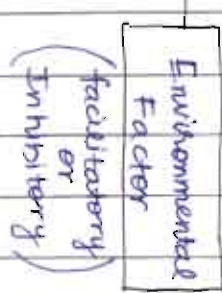 Environmental
Factor
(facilitatory
or
Inhibitory)